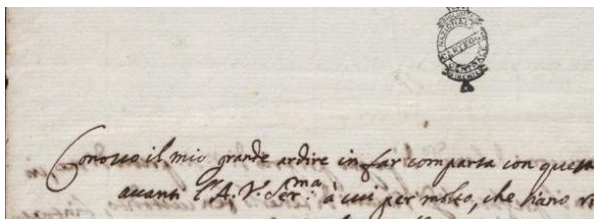 Conosco il mio grande ardire in far comparsa con questa
auanti l'A. V. Ser.ma à cui per molto, che siano